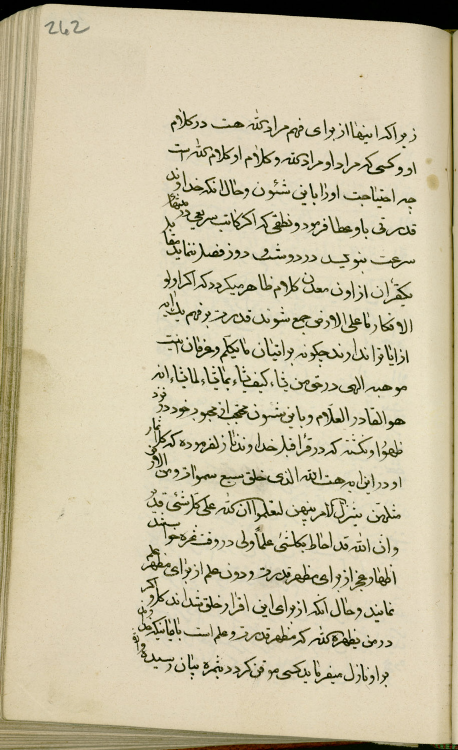 262
زیرا که اینها از برای فهم مراد الله هست در کلام
او و کسی که مراد او مراد الله و کلام او کلام الله است
چه احتیاجست او را باین شئون و حال آنکه خداوند
قدرتی باو عطا فرموده و نطقی که اگر کاتب سریعی در منتهای
سرعت بنویسد در دو شب و دو روز فصل ننماید مقابل
یکقرآن از اون معدن کلام ظاهر میگردد که اگر اولو
الافکار ما علی الارض جمع شوند قدرت بر فهم یک آیه
از آیات او ندارند چگونه بر اتیان یا تکلم و عرفان اینست
موهبه الهی در حق من یشاء کیف یشاء بما یشاء لما یشاء انه
هو القادر العلام و باین شئون محتجب از محبوب خود در نزد
ظهور او نگشته که در قرآن قبل خداوند نازل فرموده که کل ثمار
او در این آیه هست الله الذی خلق سبع سموات و من الارض
مثلهن یتنزل الامر بینهن لتعلموا ان الله علی کل شیئی قدیر
و ان الله قد احاط بکلشئ علما ولی در وقت ثمره خواستند
اظهار عجز از برای مظهر قدرت و دون علم از برای مظهر علم
نمایند و حال آنکه از برای این اقرار خلق شده‌اند کل و اگر
در من یظهره الله که مظهر قدرت و علم است باماینکه خداوند
بر او نازل میفرماید کسی موقن گردد بثمره بیان رسیده